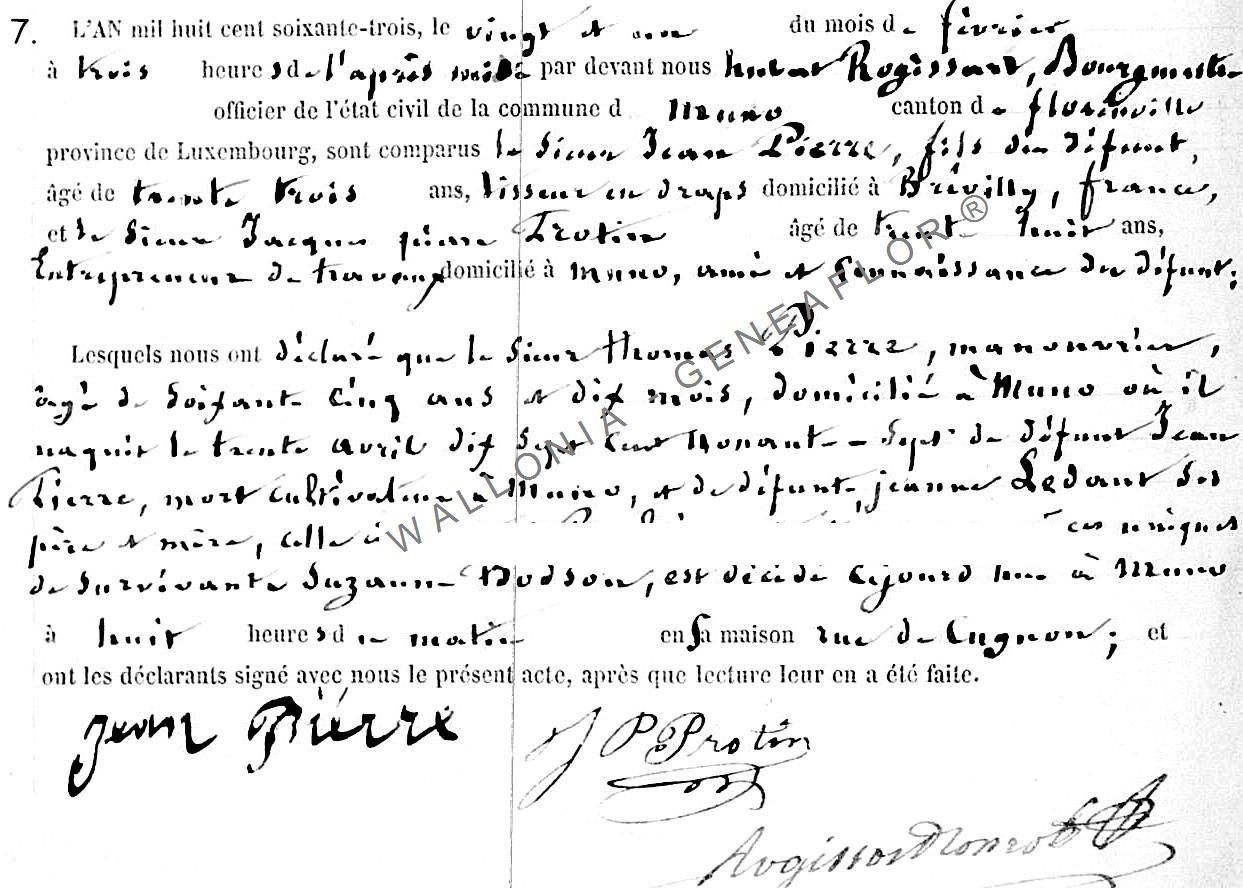 7. L'AN mil huit cent soixante-trois, le vingt et un du mois de février
à trois heures de l'après midi par devant nous Rogissart, Bourgmestre
officier de l'état civil de la commune d Muno canton de florenville
province de Luxembourg, sont comparus le Sieur Jean Pierre, fils du défunt,
âgé de trente trois ans, tisseur en draps domicilié à Brévilly, france,
et le Sieur Jacques pierre Protin âgé de trente huit ans,
Entrepreneur de travaux domicilié à muno, ami et Connaissance du défunt;
Lesquels nous ont déclaré que le Sieur thomas Pierre, manouvrier,
âgé de Soixante Cinq ans et dix mois, domicilié à Muno où il
naquit le trente avril dix Sept Cent Nonante-Sept de défunt Jean
Pierre, mort cultivateur à Muno, et de défunte jeanne Ledant Ses
père et mère, celle ci ces uniques
de Survivante Suzanne Dodson, est décédé Cejourd'hui à Muno
à huit heures du matin en Sa maison rue de Cugnon; et
ont les déclarants signé avec nous le présent acte, après que lecture leur en a été faite.
jean Pierre
J P Protin
WALLONIA GENEAFLOR ®